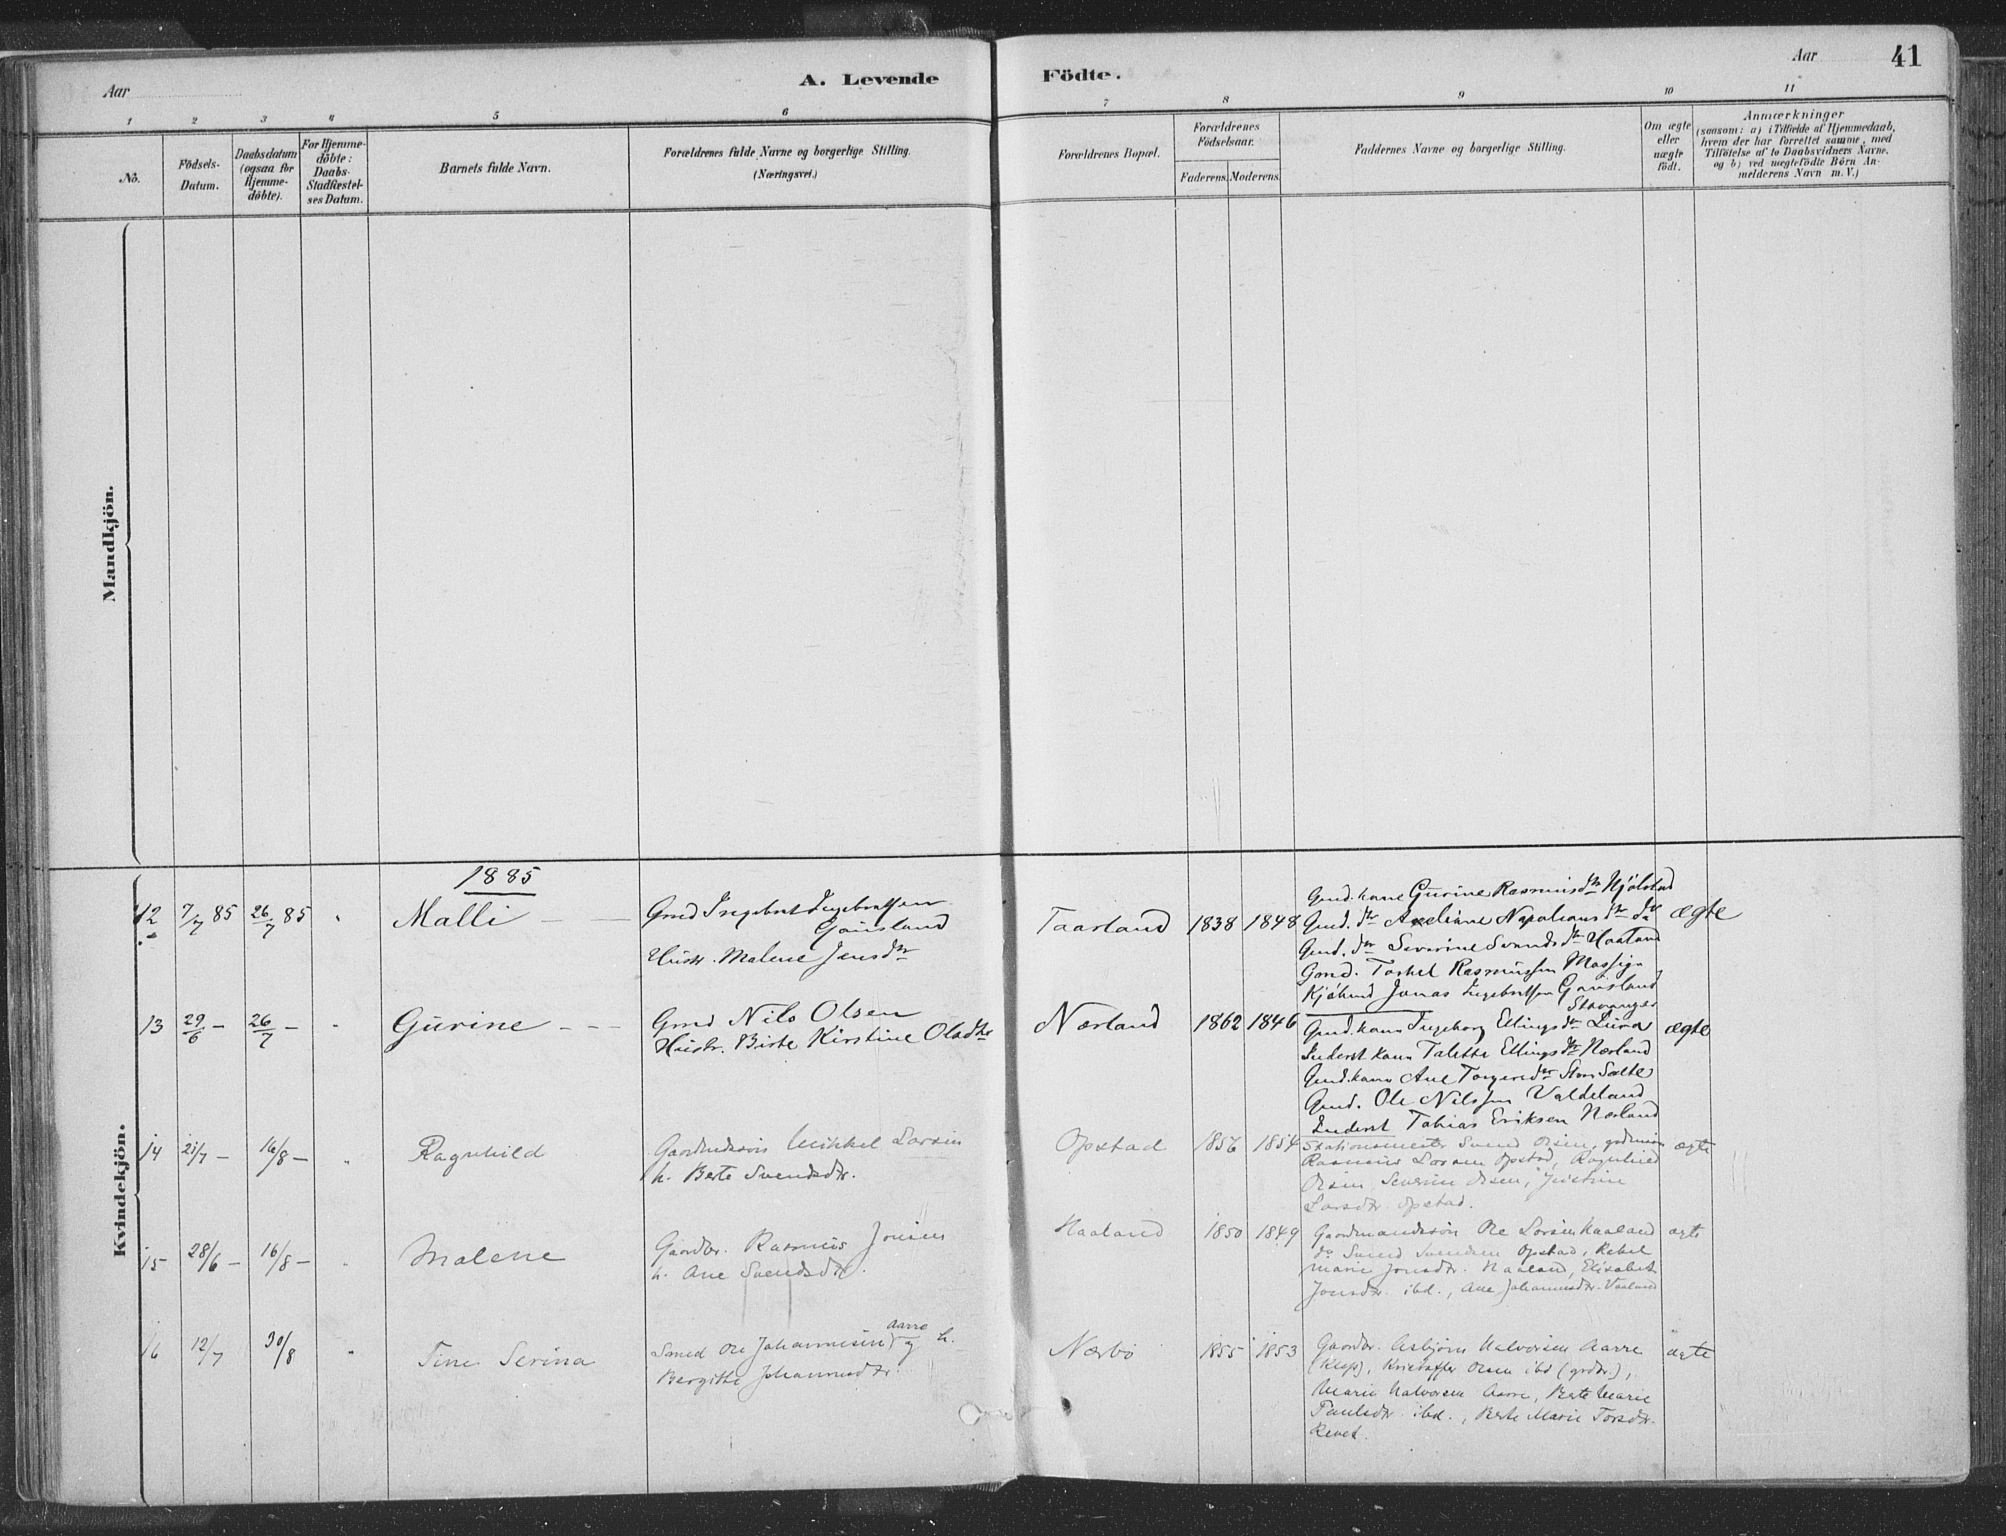 Aar
A. Levende
Födte.
Aar
41
1 2 3 4 5 6 7 8 9 10 11
No.
Födsels-
Datum.
Daabsdatum
(ogsaa for
Hjemme-
döbte).
For Hjemme-
döbte:
Daabs-
Stadfæstel-
ses Datum.
Barnets fulde Navn.
Forældrenes fulde Navne og borgerlige Stilling.
(Næringsvei.)
Forældrenes Bopæl.
Forældrenes
Födselsaar.
Faderens. Moderens.
Faddernes Navne og borgerlige Stilling.
Om ægte
eller
uægte
födt.
Anmærkninger
(saasom: a) i Tilfælde af Hjemmedaab,
hvem der har forrettet samme, med
Tilföielse af to Daabsvidners Navne.
og b) ved uægtefödte Börn An-
melderens Navn m. V.)
Mandkjön.
Kvindekjön.
1885
12 7/7 85 26/7 85 Malli
Gmd Ingebret Ingebretsen
Hustr. Malene Jensdtr
Taarland 1838 1848
Gmd. kone Gurine Rasmusdtr Njølstad
Gmd. dtr Severine Svendsdtr Haaland
Gmd. Torkel Rasmussen
Jonas Ingebretsen
Stavanger
ægte
13 29/6 – 26/7 – Gurine
Gmd Nils Olsen
Hustr. Birte Kirstine Olsdtr
Nærland 1862 1846
Gmd. kone Ingeborg Ellingsdtr Lura
Inderst kone Talette Ellingsdtr Nærland
Gmd. kone Ane
Gmd. Ole Nilssen Valdeland
Inderst Tobias Eriksen Nærland
ægte
14 21/7 – 16/8 – Ragnhild
Gaardmdssøn Mikkel Larsen
h. Berte Svendsdtr.
Opstad 1856 1854
Stationsmester Svend Olsen,
Rasmus Larsen Opstad, Ragnhild
Olsen, Severin Olsen, Justine
Larsdtr. Opstad.
ægte
15 28/6 – 16/8 – Malene
Gaardbr. Rasmus Jonsen
h. Ane Svendsdtr.
Haaland 1850 1849
Gaardmandssøn Ole Larsen Haaland
do Svend Svendsen Opstad, Rebek
Marie Jonsdtr. Haaland, Elisabet
Jonsdtr. ibd., Ane Johannesdtr.
ægte
16 12/7 30/8 Tine Serina
Smed Ole Johannesen Aarre og h.
Bergitte Johannesdtr.
Nærbø 1855 1853
Gaardbr. Asbjørn Halvorsen Aarre
(Klep), Kristoffer Olsen ibd (grdbr),
Marie Halvorsen Aarre, Berte Marie
Paulsdtr. ibd., Berte Marie Torsdtr.
Revet.
ægte